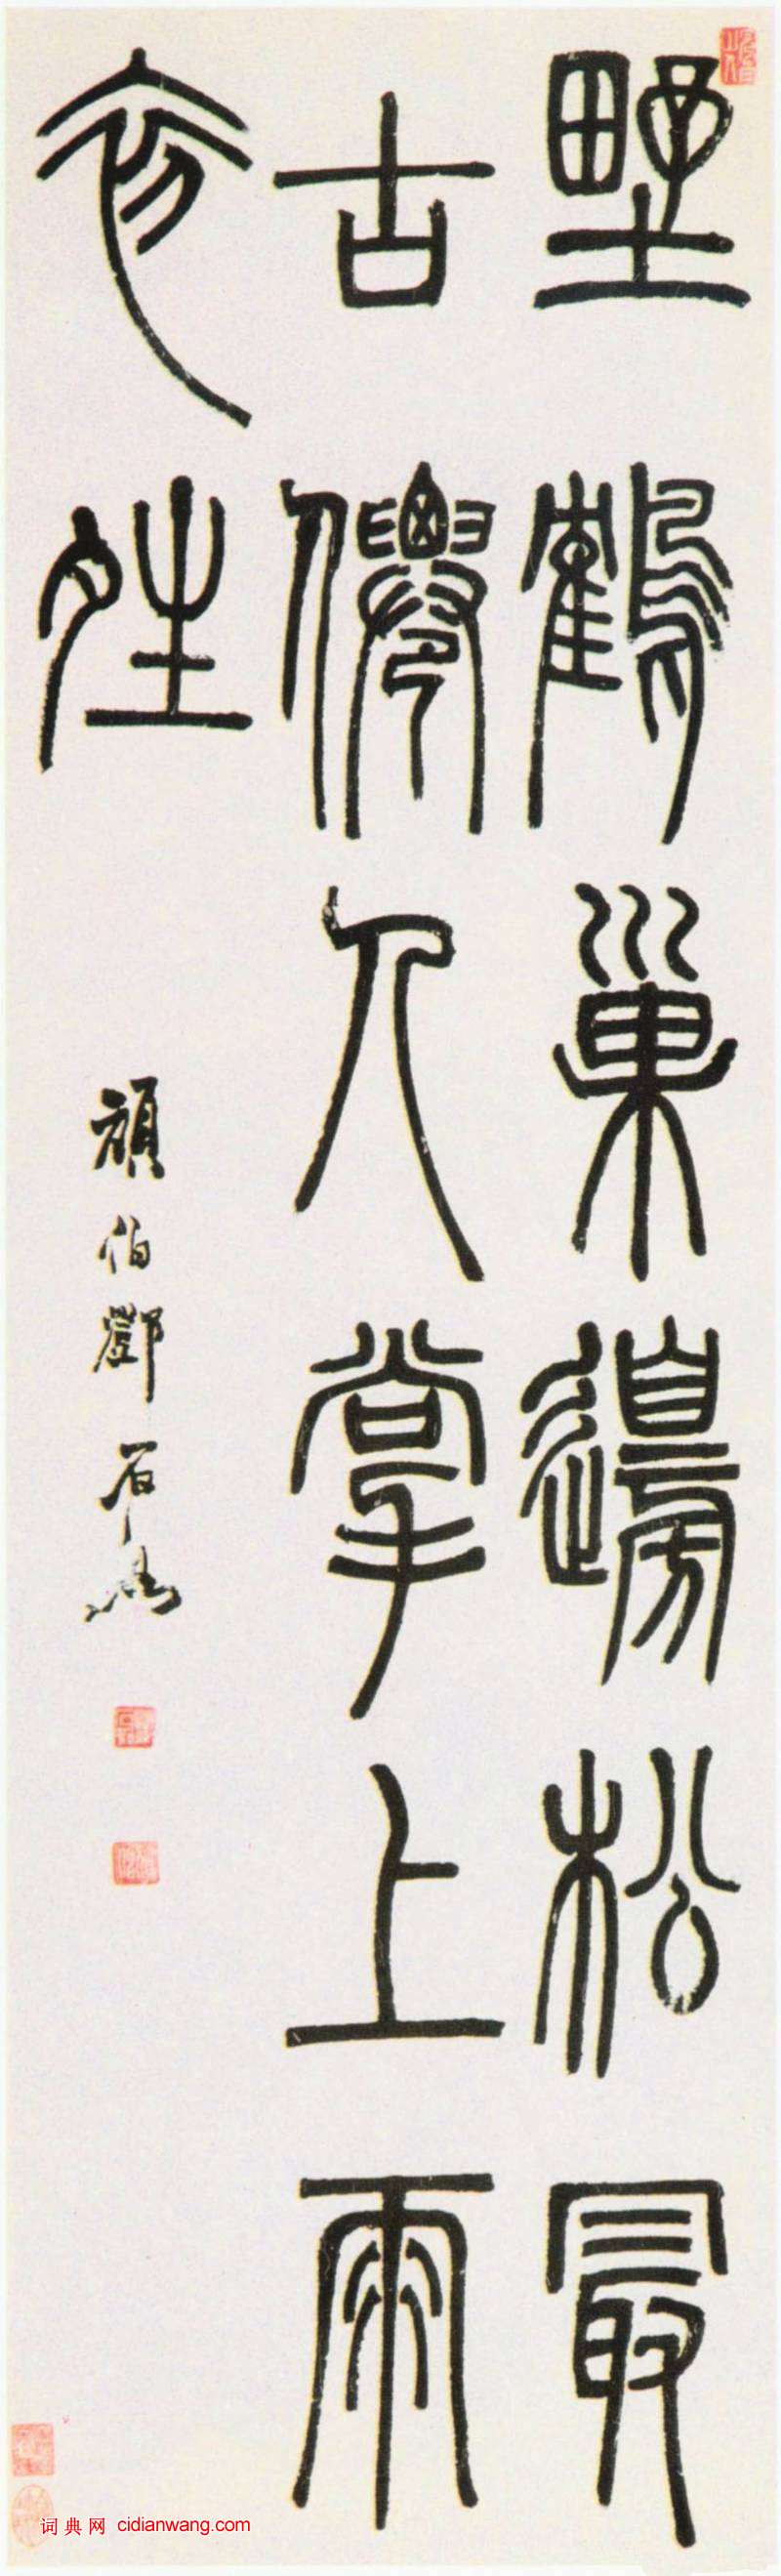 野鶴巢邊松最
古僊人掌上雨
初夝
頑伯鄧石如
词典网 cidianwang.com